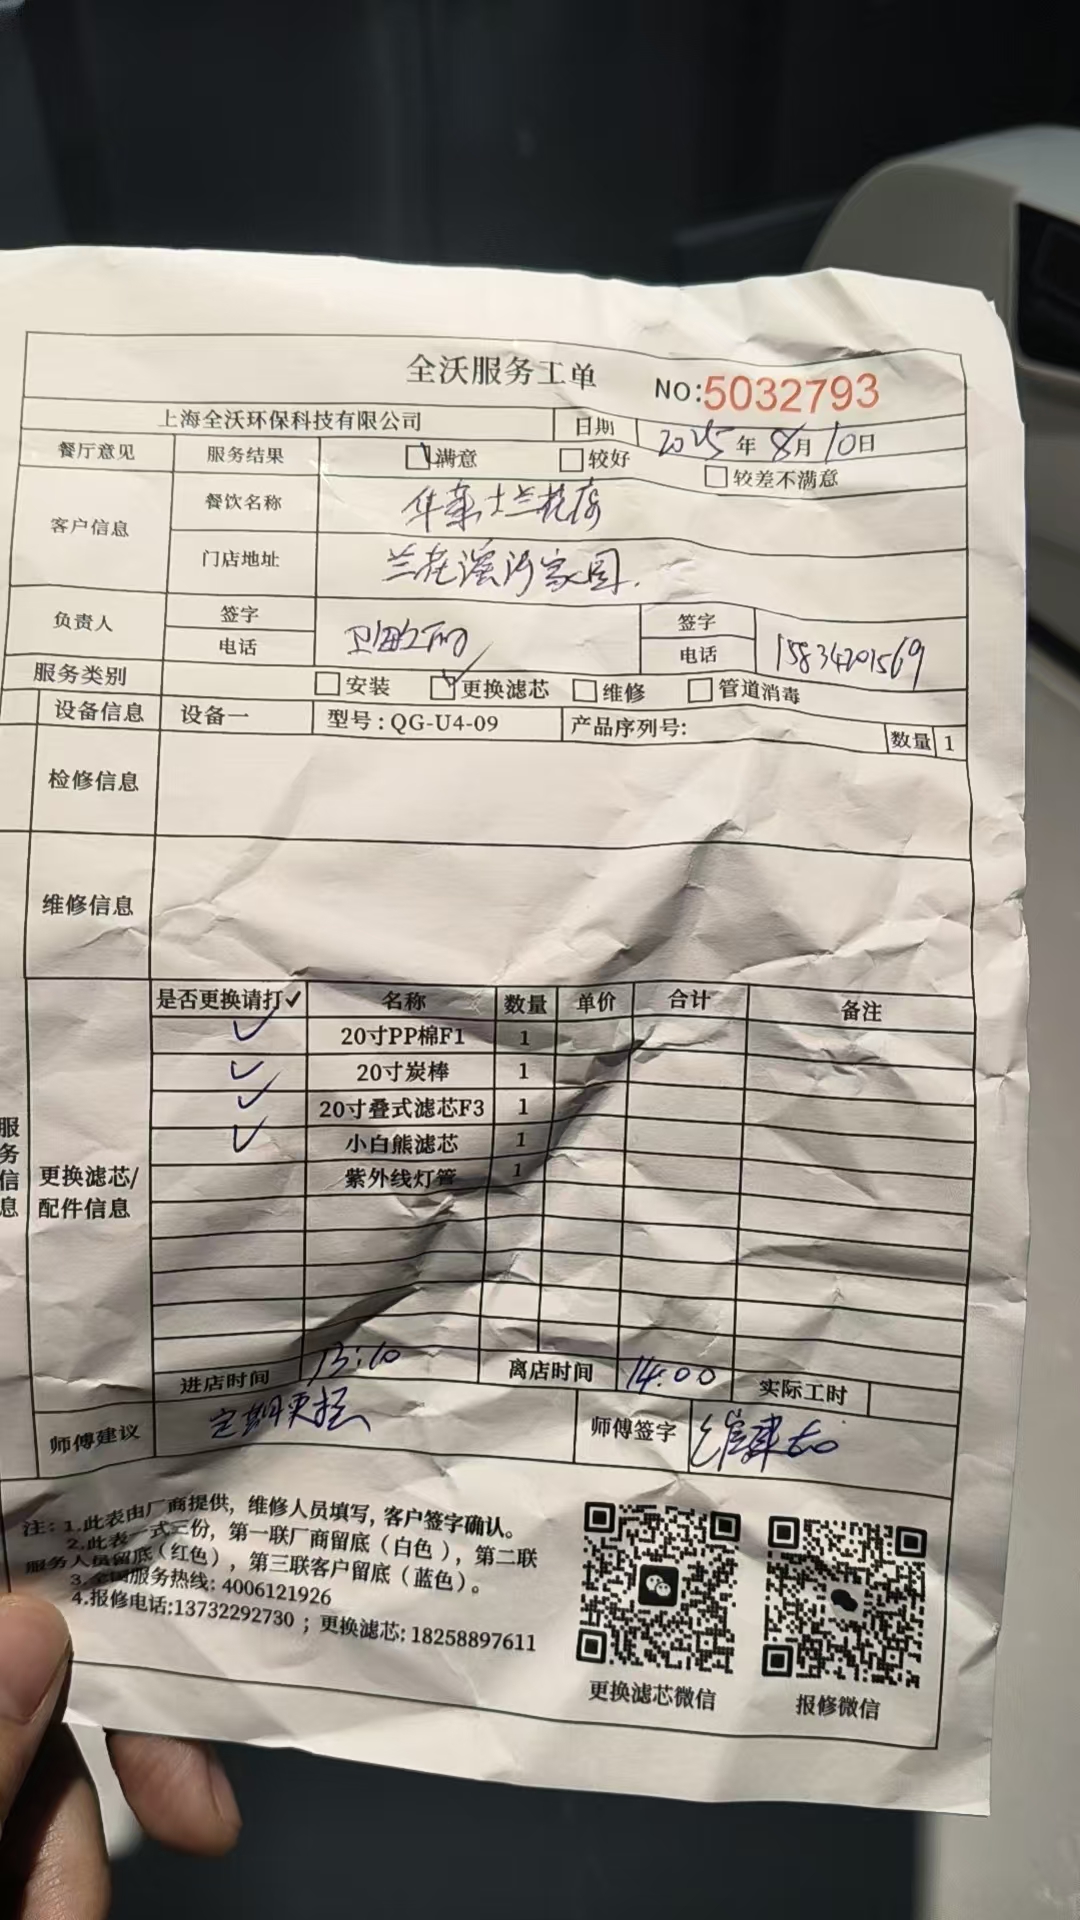 全沃服务工单
NO:5032793
上海全沃环保科技有限公司 日期 2025年8月10日
餐厅意见 服务结果 满意 较好 较差不满意
客户信息 餐饮名称 华莱士兰花店
门店地址 兰花溪河家园.
负责人 签字 签字
电话 电话 15834201569
服务类别 安装 更换滤芯 维修 管道消毒
设备信息 设备一 型号:QG-U4-09 产品序列号: 数量 1
检修信息
维修信息
服务信息
更换滤芯/
配件信息
是否更换请打✓ 名称 数量 单价 合计 备注
✓ 20寸PP棉F1 1
✓ 20寸炭棒 1
✓ 20寸叠式滤芯F3 1
✓ 小白熊滤芯 1
紫外线灯管 1
进店时间 13:10 离店时间 14:00 实际工时
师傅建议 定期更换 师傅签字
注：1.此表由厂商提供，维修人员填写，客户签字确认。
2.此表一式三份，第一联厂商留底（白色），第二联
服务人员留底（红色），第三联客户留底（蓝色）。
3.全国服务热线: 4006121926
4.报修电话:13732292730 ；更换滤芯: 18258897611
更换滤芯微信 报修微信